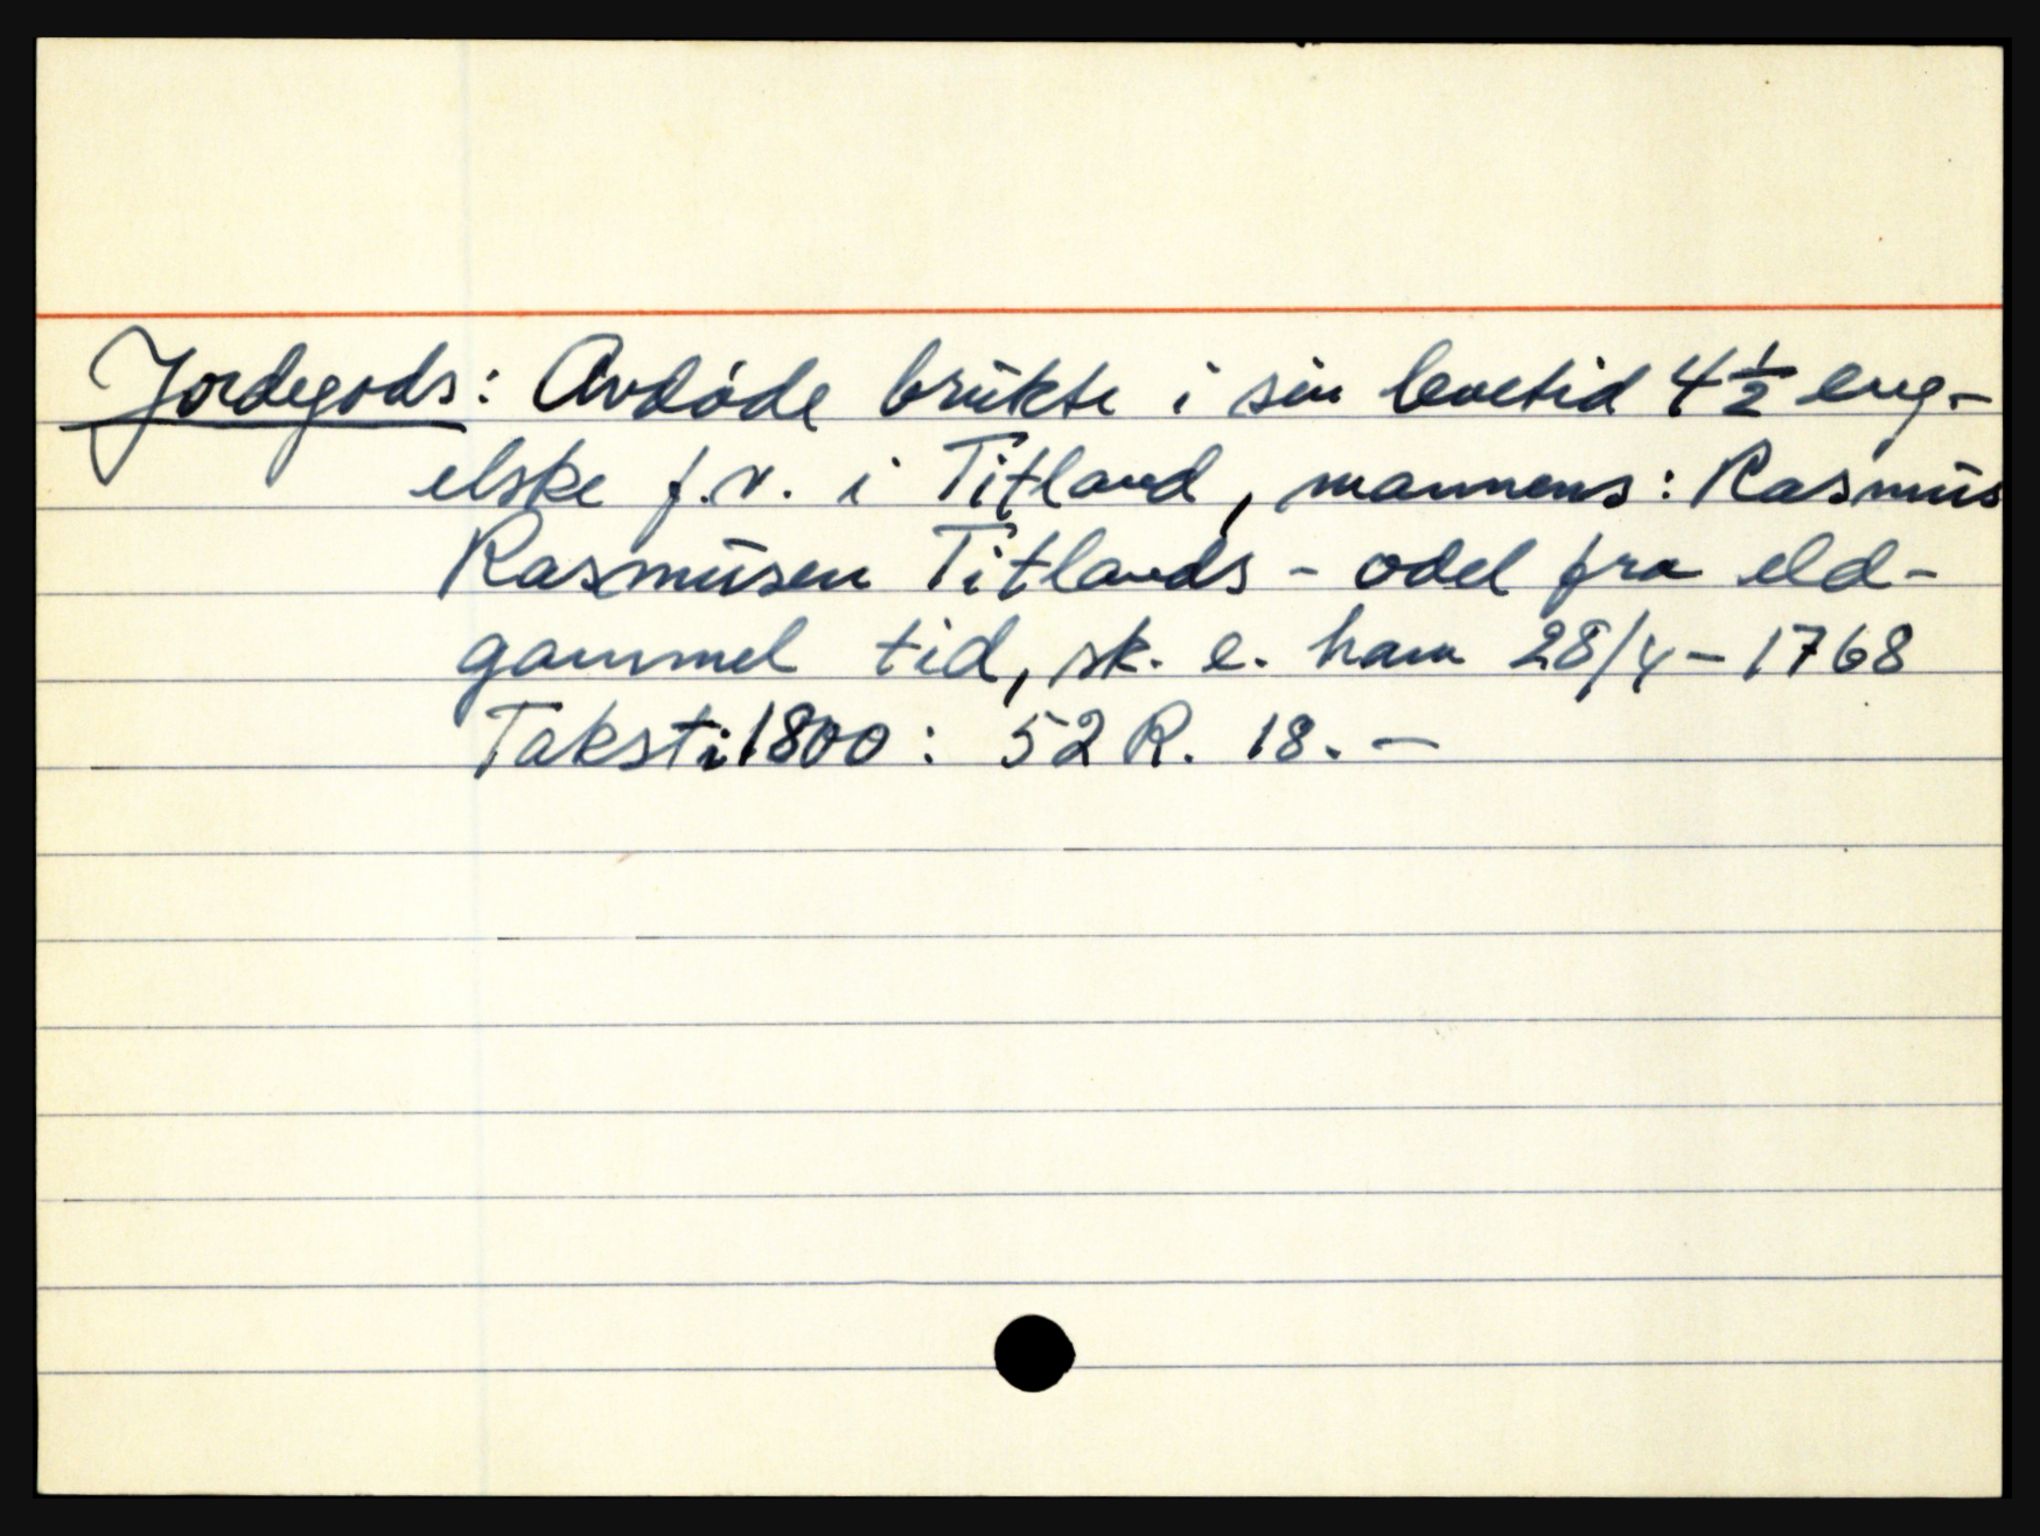 Jordegods: Avdøde brukte i sin levetid 4 1/2 eng-
elske f.v. i Titland, mannens: Rasmus
Rasmusen Titlands - odel fra eld-
gammel tid, sk. e. ham 28/4 - 1768
Takst i 1800: 52 R. 18. -